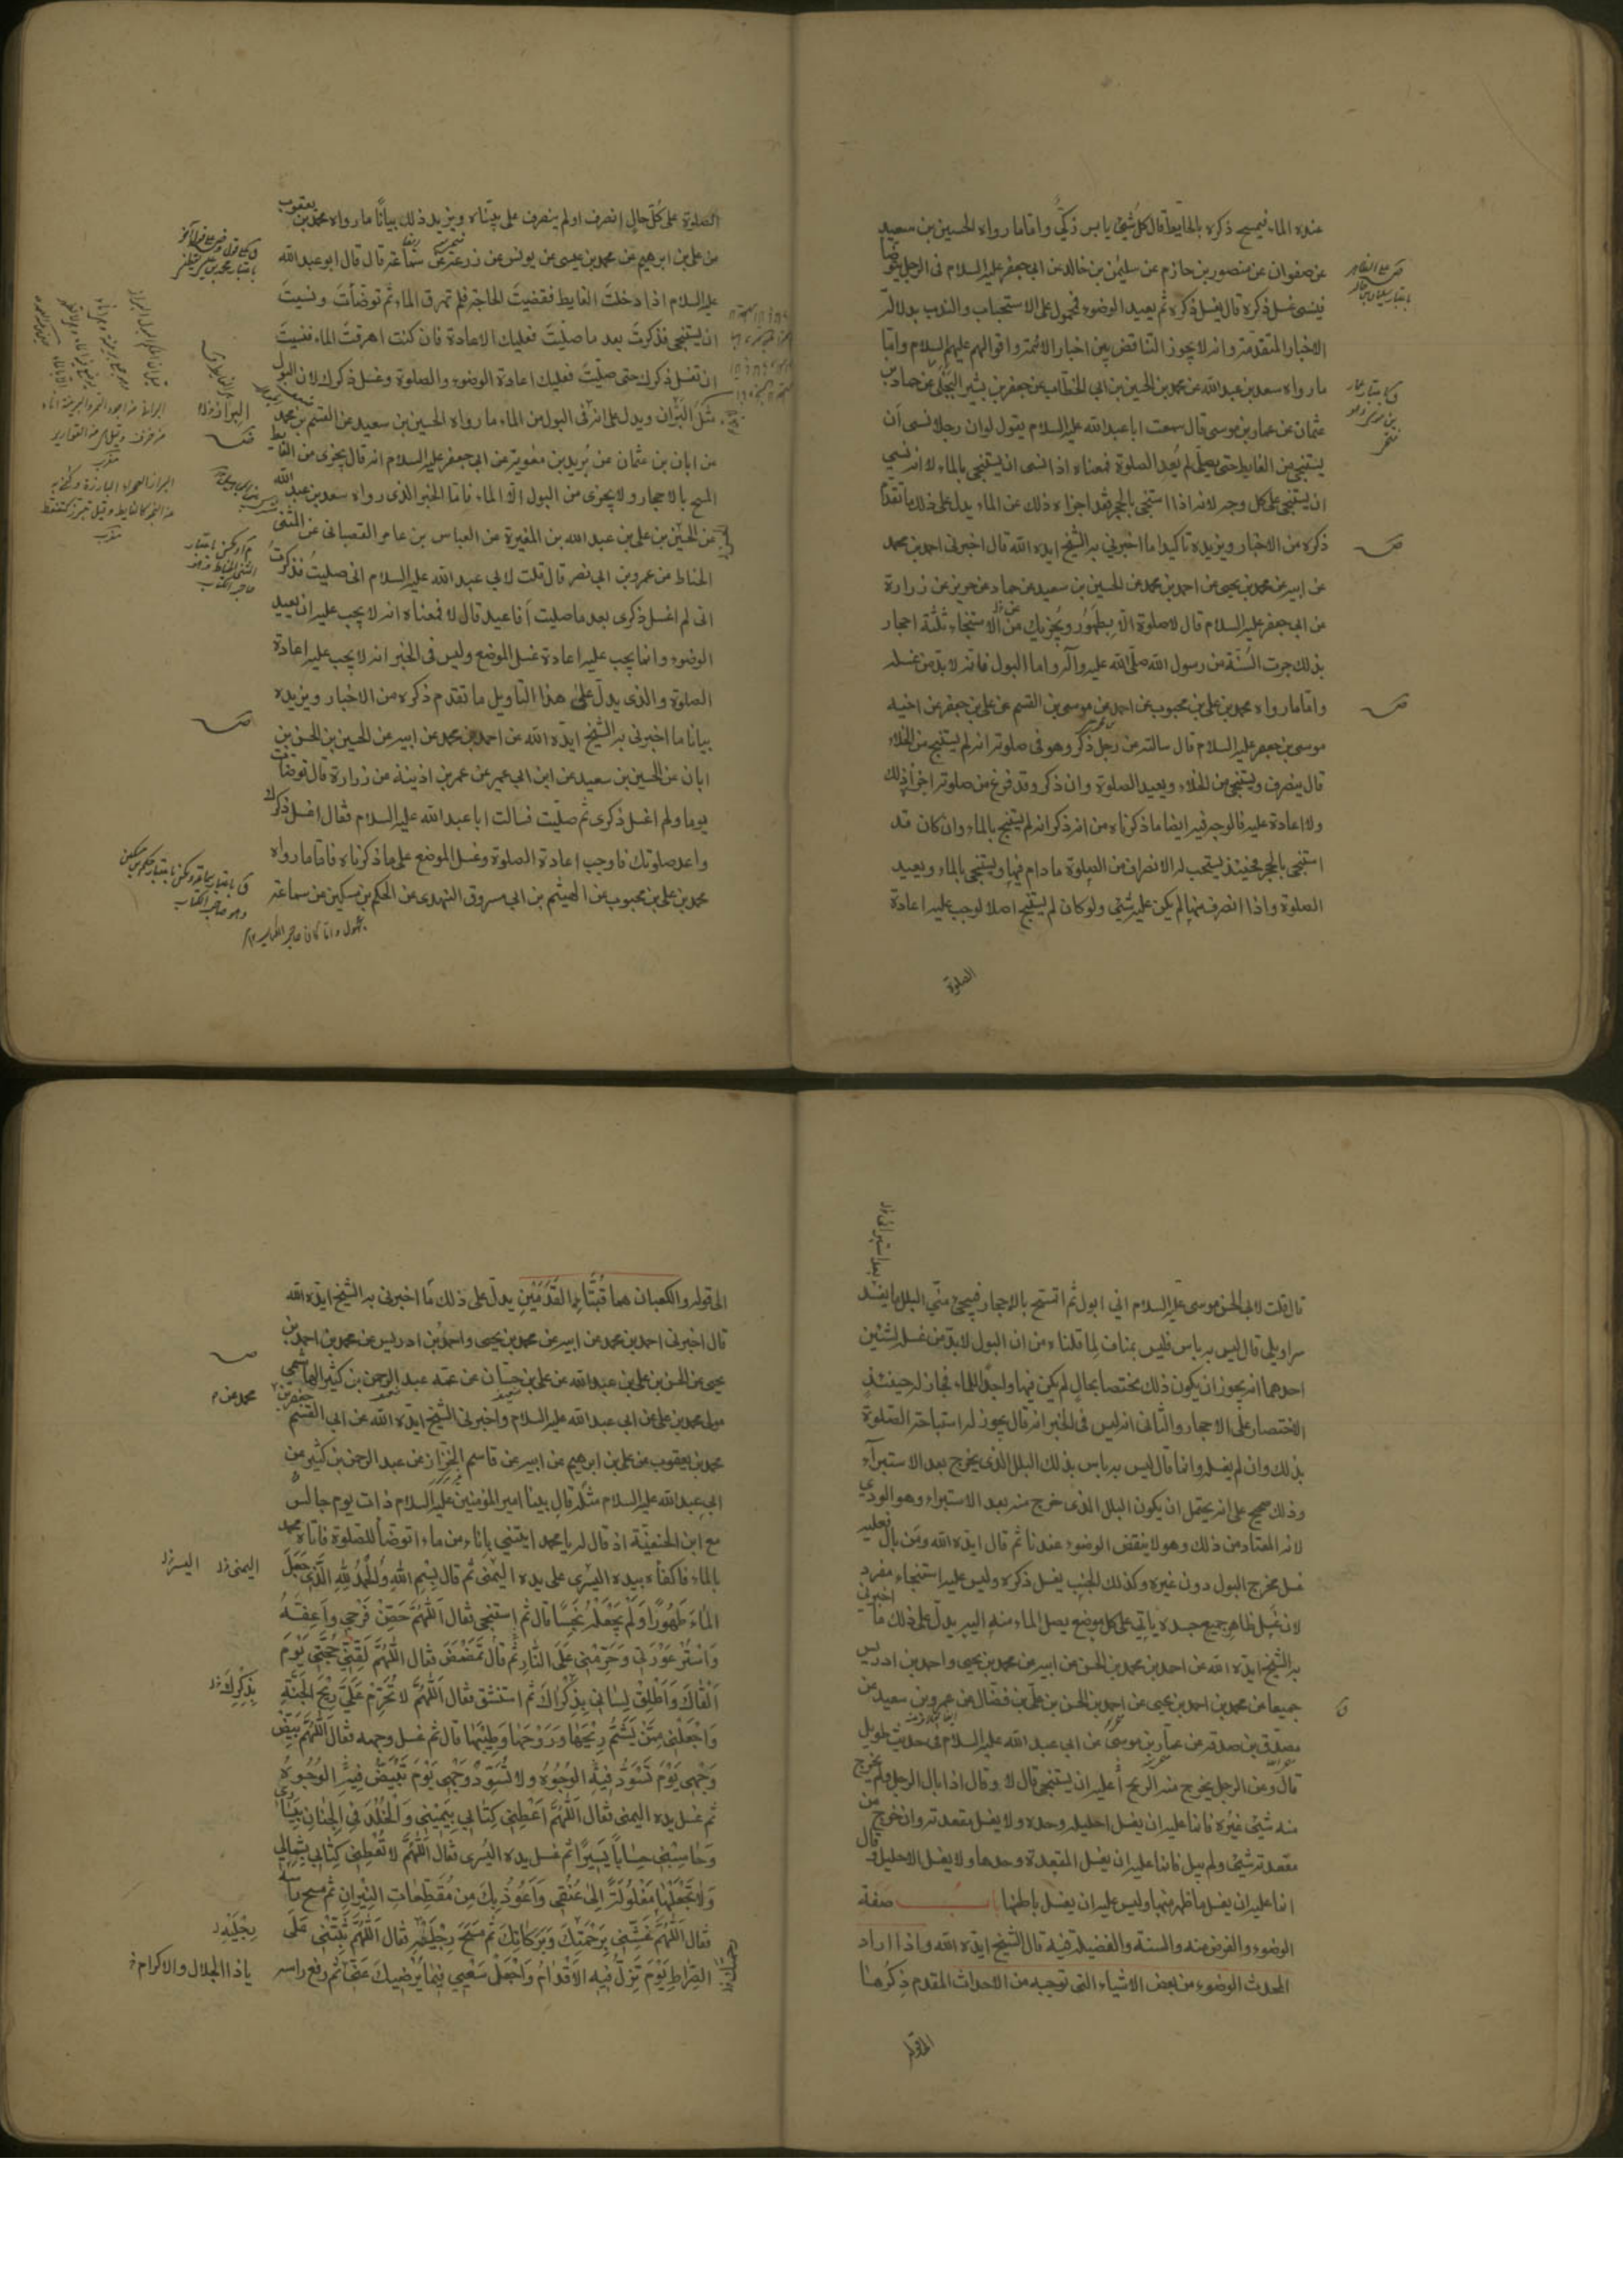 عنده الماء فيمسح ذكره بالحايط قال كل شئ يابس ذكي واما ما رواه الحسين بن سعيد
عن صفوان عن منصور بن حازم عن سليمن بن خالد عن ابي جعفر عليه السلام في الرجل يتوضأ
فينسى غسل ذكره قال يغسل ذكره ثم يعيد الوضوء فمحمول على الاستحباب والندب بدلالة
الاخبار المتقدمة وانه لا يجوز التناقض بين اخبار الائمة واقوالهم عليهم السلام واما
ما رواه سعد بن عبد الله عن محمد بن الحسين بن ابي الخطاب عن جعفر بن بشير البجلي عن حماد بن
عثمان عن عمار بن موسى قال سمعت ابا عبد الله عليه السلام يقول لو ان رجلا نسى أن
يستنجى من الغايط حتى يصلى لم يُعد الصلوة فمعناه اذا نسى ان يستنجى بالماء لا انه نسي
ان يستنجى على كل وجه لانه اذا استنجى بالحجر فقد اجزاه ذلك عن الماء يدل على ذلك ما تقدم
ذكره من الاخبار ويزيده تاكيدا ما اخبرني به الشيخ ايده الله قال اخبرنى احمد بن محمد
عن ابيه عن محمد بن يحيى عن احمد بن محمد عن الحسين بن سعيد عن حماد عن حريز عن زرارة
عن ابي جعفر عليه السلام قال لا صلوة الا بطهور ويجزيك من الاستنجاء ثلثة احجار
بذلك جرت السُّنّة من رسول الله صلى الله عليه وآله واما البول فانه لا بد من غسله
واما ما رواه محمد بن على بن محبوب عن احمد عن موسى بن القسم عن على بن جعفر عن اخيه
موسى بن جعفر عليه السلام قال سالته عن رجل ذكر وهو فى صلوته انه لم يستنج من الخلاء
قال ينصرف ويستنجى من الخلاء ويعيد الصلوة وان ذكر وقد فرغ من صلوته اجزأه ذلك
ولا اعادة عليه فالوجه فيه ايضا ما ذكرناه من انه ذكر انه لم يستنج بالماء وان كان قد
استنجى بالحجر فحينئذ يستحب له الانصراف من الصلوة ما دام فيها ويستنجى بالماء ويعيد
الصلوة واذا انصرف منها لم يكن عليه شئ ولو كان لم يستنج اصلا لوجب عليه اعادة
الصلوة
الصلوة على كل حال انصرف او لم ينصرف على ما بيناه ويزيد ذلك بيانًا ما رواه محمد بن يعقوب
عن على بن ابرهيم عن محمد بن عيسى عن يونس عن زرعة عن سماعة قال قال ابو عبد الله
عليه السلام اذا دخلتَ الغايط فقضيتَ الحاجة فلم تهرق الماء ثم توضأتَ ونسيتَ
ان تستنجى فذكرتَ بعد ما صليتَ فعليك الاعادة فان كنت اهرقتَ الماء فنسيتَ
ان تغسل ذكرك حتى صليتَ فعليك اعادة الوضوء والصلوة وغسل ذكرك لان البول
مثل البراز ويدل على انه فى البول من الماء ما رواه الحسين بن سعيد عن القسم بن محمد
عن ابان بن عثمان عن بُريد بن معوية عن ابي جعفر عليه السلام انه قال يجزى من الغايط
المسح بالاحجار ولا يجزى من البول الا الماء فاما الخبر الذى رواه سعد بن عبد الله
عن الحسن بن على بن عبد الله بن المغيرة عن العباس بن عامر القصبانى عن المثنى
الحناط عن عمرو بن ابي نصر قال قلت لابي عبد الله عليه السلام انى صليتُ فذكرتُ
انى لم اغسل ذكرى بعد ما صليت أفاعيد قال لا فمعناه انه لا يجب عليه ان يعيد
الوضوء وانما يجب عليه اعادة غسل الموضع وليس فى الخبر انه لا يجب عليه اعادة
الصلوة والذى يدل على هذا التاويل ما تقدم ذكره من الاخبار ويزيده
بيانا ما اخبرنى به الشيخ ايده الله عن احمد بن محمد عن ابيه عن الحسين بن الحسن بن
ابان عن الحسين بن سعيد عن ابن ابي عمير عن عمر بن اذينة عن زرارة قال توضأت
يوما ولم اغسل ذكرى ثم صليت فسالت ابا عبد الله عليه السلام فقال اغسل ذكرك
واعد صلوتك فاوجب اعادة الصلوة وغسل الموضع على ما ذكرناه فاما ما رواه
محمد بن على بن محبوب عن الهيثم بن ابي مسروق النهدى عن الحكم بن مسكين عن سماعة
قال قلت لابي الحسن موسى عليه السلام اني ابول ثم اتمسح بالاحجار فيجئ منّي البلل ما يفسد
سراويلى قال ليس به باس فليس بمناف لما قلناه من ان البول لا بد من غسله لشيئين
احدهما انه يجوز ان يكون ذلك مختصا بحال لم يكن فيها واجدًا للماء فجاز له حينئذ
الاقتصار على الاحجار والثانى انه ليس فى الخبر انه قال يجوز له استباحة الصلوة
بذلك وان لم يغسله وانما قال ليس به باس بذلك البلل الذى يخرج بعد الاستبراء
وذلك صحيح على انه يحتمل ان يكون البلل الذى خرج منه بعد الاستبراء وهو الودي
لانه المعتاد من ذلك وهو لا ينقض الوضوء عندنا ثم قال ايده الله ومن بال فعليه
غسل مخرج البول دون غيره وكذلك الجنب يغسل ذكره وليس عليه استنجاء مفرد
لان غسل ظاهر جميع جسده ياتى على كل موضع يصل الماء منه اليه يدل على ذلك ما اخبرني
به الشيخ ايده الله عن احمد بن محمد بن الحسن عن ابيه عن محمد بن يحيى واحمد بن ادريس
جميعا عن محمد بن احمد بن يحيى عن احمد بن الحسن بن على بن فضال عن عمرو بن سعيد عن
مصدق بن صدقة عن عمار بن موسى عن ابي عبد الله عليه السلام فى حديث طويل
قال وعن الرجل يخرج منه الريح أعليه ان يستنجى قال لا وقال اذا بال الرجل ولم يخرج
منه شئ غيره فانما عليه ان يغسل احليله وحده ولا يغسل مقعدته وان خرج من
مقعدته شئ ولم يبل فانما عليه ان يغسل المقعدة وحدها ولا يغسل الاحليل وقال
انما عليه ان يغسل ما ظهر منها وليس عليه ان يغسل باطنها باب صفة
الوضوء والفرض منه والسنة والفضيلة فيه قال الشيخ ايده الله واذا اراد
المحدث الوضوء من بعض الاشياء التى توجبه من الاحداث المقدم ذكرها
الى قوله والكعبان هما قبتا القدمين يدل على ذلك ما اخبرنى به الشيخ ايده الله
قال اخبرنى احمد بن محمد عن ابيه عن محمد بن يحيى واحمد بن ادريس عن محمد بن احمد بن
يحيى عن الحسن بن على بن عبد الله عن على بن حسان عن عمه عبد الرحمن بن كثير الهاشمى
مولى محمد بن على عن ابي عبد الله عليه السلام واخبرنى الشيخ ايده الله عن ابي القسم جعفر بن
محمد عن م
محمد بن يعقوب عن على بن ابرهيم عن ابيه عن قاسم الخزاز عن عبد الرحمن بن كثير عن
ابي عبد الله عليه السلام مثله قال بينا امير المؤمنين عليه السلام ذات يوم جالس
مع ابن الحنفية اذ قال له يا محمد ايتنى باناء من ماء اتوضأ للصلوة فاتاه محمد
بالماء فاكفأه بيده اليسرى على يده اليمنى ثم قال بسم الله والحمد لله الذى جعل
الماء طهورًا ولم يجعله نجسًا قال ثم استنجى فقال اللهم حصن فرجى واعفّه
واستر عورتى وحرمنى على النار ثم قال تمضمض فقال اللهم لقنى حجتى يوم
القاك واطلق لسانى بذكراك ثم استنشق فقال اللهم لا تحرم على ريح الجنة
بذكرك
واجعلنى ممن يشم ريحها وروحها وطيبها قال ثم غسل وجهه فقال اللهم بيض
وجهى يوم تسود فيه الوجوه ولا تسود وجهى يوم تبيض فيه الوجوه
ثم غسل يده اليمنى فقال اللهم اعطنى كتابي بيمينى والخلد فى الجنان بيسارى
وحاسبنى حسابا يسيرا ثم غسل يده اليسرى فقال اللهم لا تعطنى كتابي بشمالي
ولا تجعلها مغلولة الى عنقى واعوذ بك من مقطعات النيران ثم مسح راسه
فقال اللهم غشنى برحمتك وبركاتك ثم مسح رجليه فقال اللهم ثبتنى على
الصراط يوم تزل فيه الاقدام واجعل سعيي فيما يرضيك عنى ثم رفع راسه
يا ذا الجلال والاكرام